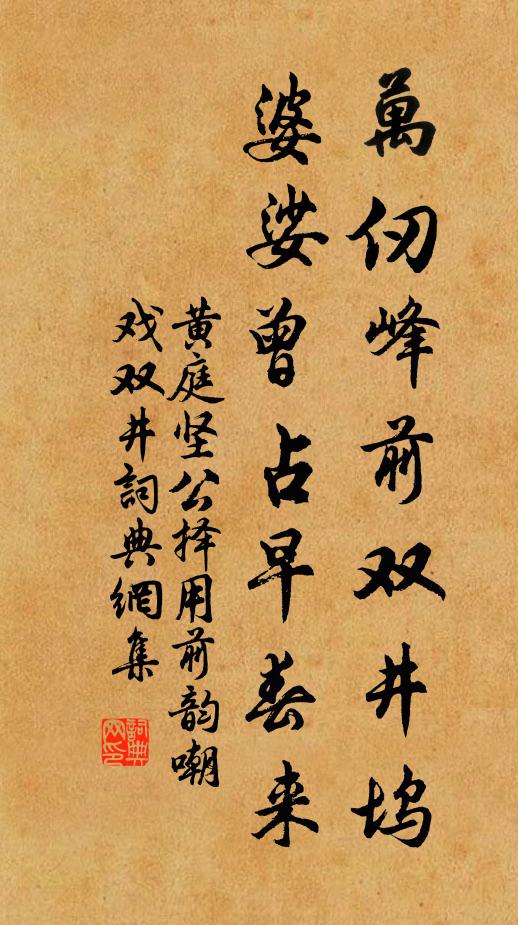 萬仞峰前双井坞
婆娑曾占早春来
黄庭坚公择用前韵嘲
戏双井詞典網集
詞典网印